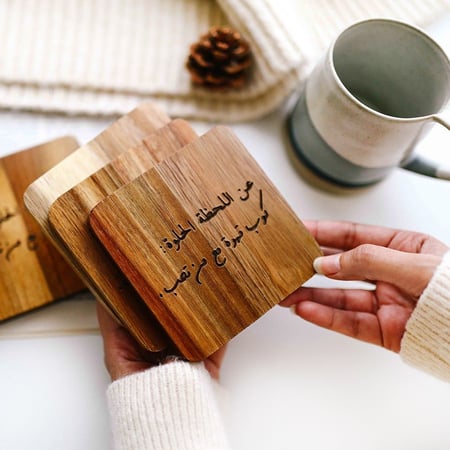 عن اللحظة الحلوة:
كوب قهوة مع من تحب.